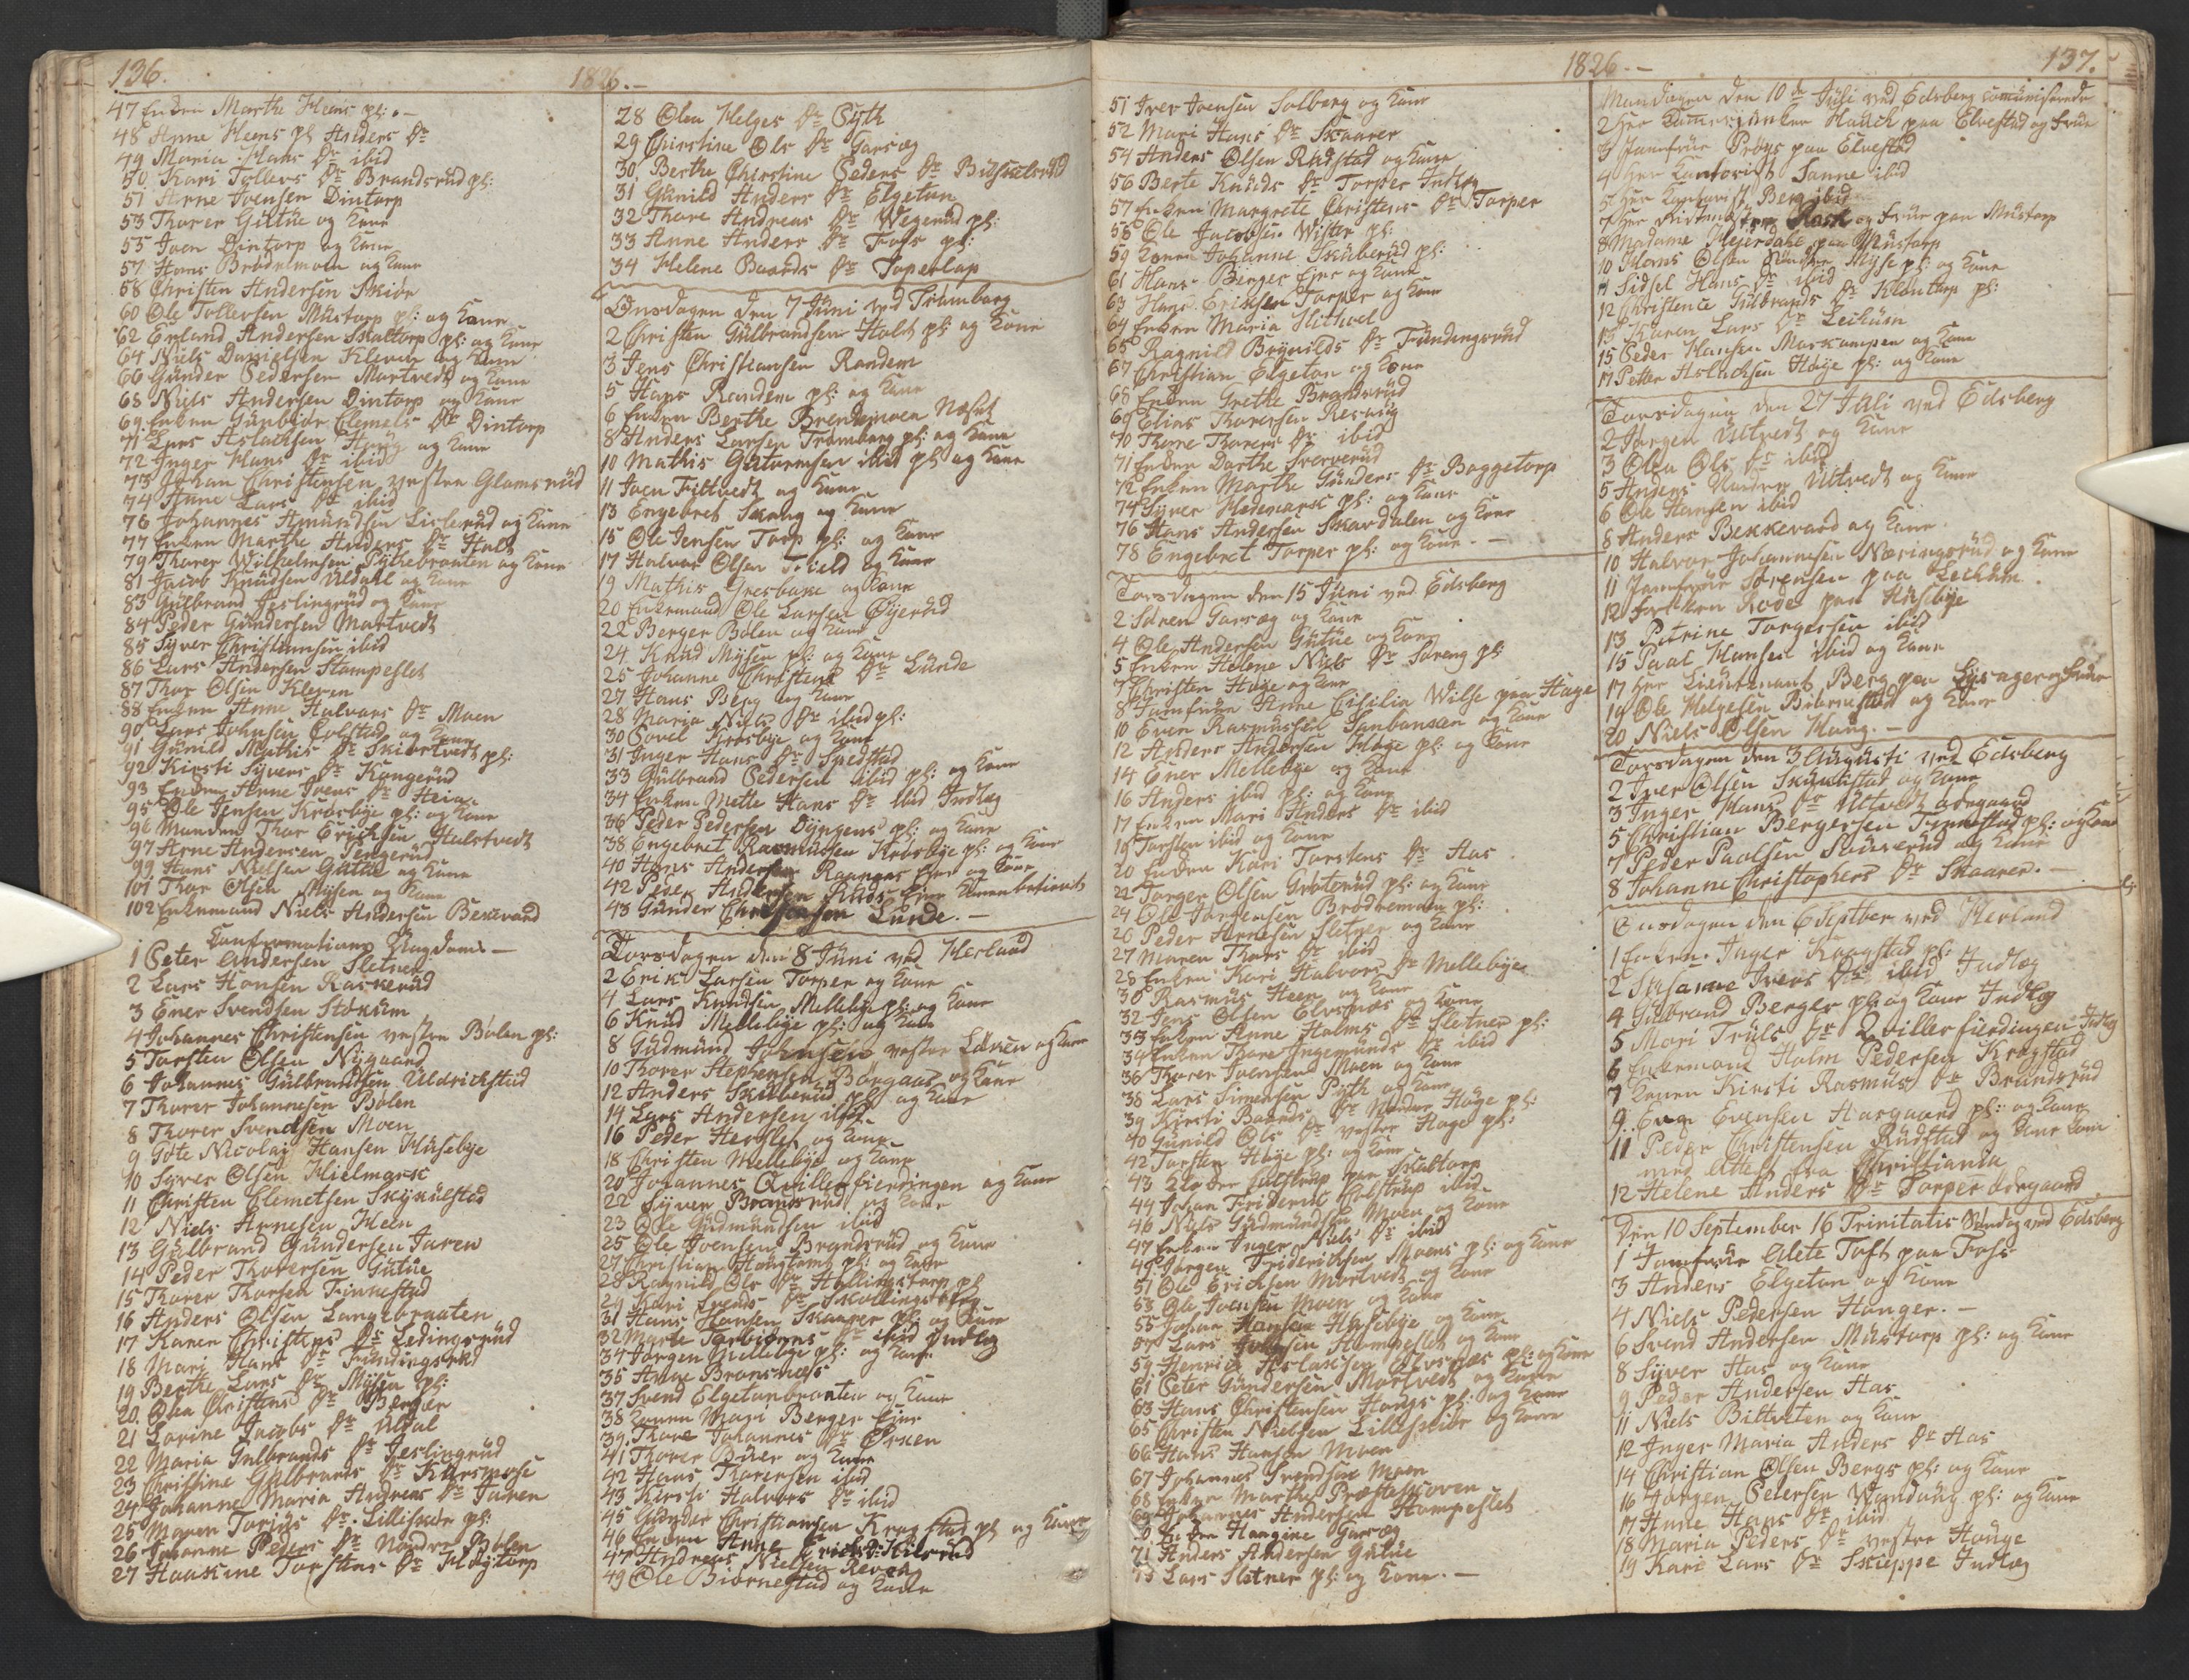 136.
1826.-
47 Enken Marthe Heens pl:
48 Anne Heens pl Anders Dr
49 Maria Hans Dr ibid
50 Kari Tollevs Dr Brandsrüd pl:
51 Arne Joensen Dintorp
53 Thorer Gütüe og Kone
55 Joen Dintorp og Kone
57 Hans Brødremoen og Kone
58 Christen Andersen Skiør
60 Ole Tollevsen Müstorp pl: og Kone
62 Erland Andersen Skattorp pl: og Kone
64 Niels Danielsen Kleven og Kone
66 Günder Pedersen Martvedt og Kone
68 Niels Andersen Dintorp og Kone
69 Enken Günbiør Clemets Dr Dintorp
71 Lars Aslachsen Høiÿ og Kone
72 Inger Hans Dr ibid
73 Johan Christensen vestre Glamsrüd
74 Anne Lars Dr ibid
76 Johannes Amündsen Lislerüd og Kone
77 Enken Marthe Anders Dr Holt
79 Thorer Wilhelmsen Pÿthebraaten og Kone
81 Jacob Knüdsen Üldahl og Kone
83 Gülbrand Jeslingrüd og Kone
84 Peder Gündersen Martvedt
85 Sÿver Christiansen ibid
86 Lars Andersen Stampeslet
87 Thor Olsen Kleven
88 Enken Anne Halvors Dr Moen
90 Lars Johnsen Colstad og Kone
91 Günild Mathis Dr Skiørtvedt pl:
92 Kirsti Sÿvers Dr Kangerüd
93 Enken Anne Ivers Dr Heia
95 Ole Jensen Krosbÿe pl: og Kone
96 Manden Thor Erichsen Hülstvedt
97 Arne Andersen Tengerüd
99 Hans Nielsen Gütüe og Kone
101 Thor Olsen Mÿsen og Kone
102 Enkemand Niels Andersen Bekevard
Confirmations Ungdom -
1 Peter Andersen Sletner
2 Lars Hansen Raskerüd
3 Ener Svendsen Stoküm
4 Johannes Christensen vestre Bolen pl:
5 Torsten Olsen Nÿgaard
6 Johannes Gülbrandsen Üldrichstad
7 Thorer Johannesen Bolen
8 Thorer Svendsen Moen
9 Gøte Nicolaÿ Hansen Hüsebÿe
10 Sÿver Olsen Hielmark
11 Christen Clemetsen Skÿkülstad
12 Niels Arnesen Heen
13 Gülbrand Gündersen Jaren
14 Peder Thorersen Gütüe
15 Thorer Thorsen Finnestad
16 Anders Olsen Langebraaten
17 Karen Christens Dr Ledingsrüd
18 Mari Hans Dr Fündingsrüd
19 Berthe Lars Dr Mÿsen pl:
20 Olea Christens Dr Berger
21 Lovine Jacobs Dr Üldal
22 Maria Gülbrands Dr Jeslingrüd
23 Christine Gülbrands Dr Kürsmose
24 Johanne Maria Andreas Dr Jaren
25 Maren Toriüs Dr Lilleskiør pl:
26 Johanne Peders Dr Nordre Bolen
27 Haakine Torstens Dr Høÿtorp
28 Olea Helges Dr Pÿth
29 Christine Ols Dr Garseg
30 Berthe Christine Peders Dr
31 Günild Anders Dr Elgeton
32 Thore Andreas Dr Wegerüd pl:
33 Anne Anders Dr Foss pl:
34 Helene Baards Dr Toperlap
Onsdagen den 7 Jüni ved Trømborg
2 Christen Gülbrandsen Holt pl: og Kone
3 Jens Christiansen Randem
5 Hans Randem pl: og Kone
6 Enken Berthe Brendemoen Næset
8 Anders Larsen Trømborg pl: og Kone
10 Mathis Gütormsen ibid pl: og Kone
11 Joen Tiltvedt og Kone
13 Engebret Skoug og Kone
15 Ole Jensen Torp pl: og Kone
17 Halvor Olsen Field og Kone
19 Mathis Gresbaxe og Kone
20 Enkemand Ole Larsen Øÿerüd
22 Berger Bølen og Kone
24 Knüd Mÿsen pl: og Kone
25 Johanne Christens Dr Lünde
27 Hans Berg og Kone
28 Maria Niels Dr ibid pl:
30 Povel Krosbÿe og Kone
31 Inger Hans Dr Spedstad
33 Gülbrand Pedersen ibid pl: og Kone
34 Enken Mette Hans Dr ibid Indlæg
36 Peder Pedersen Dÿngens pl: og Kone
38 Engebret Rasmüssen Krosbÿe pl: og Kone
40 Hans Andersen Raanaas Eier og Kone
42 Peder Andersen Rüds Eier Konen betient
43 Günder Christensen Lünde. -
Torsdagen den 8 Jüni ved Herland
2 Erik Larsen Torper og Kone
4 Lars Knüdsen Mellebÿe pl: og Kone
6 Knüd Mellebÿe pl: og Kone
8 Güdmünd Johnsen vestre Løken og Kone
10 Thorer Stephensen Børgaas og Kone
12 Anders Sküberüd pl: og Kone
14 Lars Andersen ibid
16 Peder Herslet og Kone
18 Christen Mellebÿe og Kone
20 Johannes Qvillerfierdingen og Kone
22 Sÿver Brandsrüd og Kone
23 Ole Güdmündsen ibid
25 Ole Joensen Brandsrüd og Kone
27 Christian Haugtomt pl: og Kone
28 Ragnild Ols Dr Hallingstorp pl
29 Kari Svends Dr Skollingsberg
31 Hans Hansen Skaarer pl: og Kone
32 Marte Torbiørns Dr ibid Indlæg
34 Jørgen Mellebÿe pl: og Kone
35 Anne Bronsnæs
37 Svend Elgetonbraaten og Kone
38 Konen Mari Berger Eier
39 Thore Johannes Dr Ørken
41 Thorer Büer og Kone
42 Hans Thorersen ibid
43 Kirsti Halvors Dr ibid
45 Günder Christiansen Kragstad pl: og Kone
46 Enken Anne Erichs Dr Hilsrüd
47 Andreas Nielsen Reven
49 Ole Biørnestad og Kone
1826.-
137.
51 Iver Joensen Solberg og Kone
52 Mari Hans Dr Skaarer
54 Anders Olsen Rüdstad og Kone
56 Berte Knüds Dr Torper Indlæg
57 Enken Margrete Christens Dr Torper
58 Ole Jacobsen Wister pl:
59 Konen Johanne Sküberüd pl:
61 Hans Berger Eier og Kone
63 Hans Eriksen Torper og Kone
64 Enken Maria Slitvet
65 Ragnild Brÿnilds Dr Fündingsrüd
67 Christian Elgeton og Kone
68 Enken Grethe Brandsrüd
69 Elias Thorersen Resaüg
70 Thore Thorers Dr ibid
71 Enken Dorthe Sververüd
72 Enken Marthe Günders Dr Baggetorp
74 Sÿver Hedemark pl: og Kone
76 Hans Andersen Skavdalen og Kone
78 Engebret Torper pl: og Kone. -
Torsdagen den 15 Jüni ved Edsberg
2 Søren Garseg og Kone
4 Ole Andersen Gütüe og Kone
5 Enken Helene Niels Dr Søreng pl
7 Christen Høÿe og Kone
8 Jomfrüe Anne Cicilia Wilse paa Hage
10 Even Rasmüssen Sanbonsæn og Kone
12 Anders Andersen Hage pl: og Kone
14 Ener Mellebÿe og Kone
16 Anders ibid pl: og Kone
17 Enken Mari Anders Dr ibid
19 Torsten ibid og Kone
20 Enken Kari Torstens Dr Aas
22 Torger Olsen Grøterüd pl: og Kone
24 Ole Jørgensen Brødremoen pl:
26 Peder Arnesen Sletner og Kone
27 Maren Thors Dr ibid
28 Enken Kari Halvors Dr Mellebÿe
30 Rasmüs Heen og Kone
32 Jens Olsen Elvsnæs og Kone
33 Enken Anne Holms Dr Sletner pl:
34 Enken Thore Ingemünds Dr ibid
36 Thorer Joensen Moen og Kone
38 Lars Simensen Pÿth og Kone
39 Kirsti Baards Dr Nordre Høÿe pl:
40 Günild Ols Dr vestre Hage pl:
42 Torsten Høÿe pl: og Kone
43 Kloker Colstrup paa Skattorp
44 Johan Friderich Colstrüp ibid
46 Niels Güdmündsen Moen og Kone
47 Enken Inger Niels Dr ibid
49 Jørgen Friderichsen Moens pl: og Kone
51 Ole Erichsen Martvedt og Kone
53 Ole Joensen Moen og Kone
55 Johan Hansen Hüsebÿe og Kone
57 Lars Stampeslet og Kone
59 Henrich Aslaksen Elvsnæs pl: og Kone
61 Peter Gündersen Martvedt og Kone
63 Hans Christensen Høÿs pl: og Kone
65 Christen Nielsen Lilleskiør og Kone
66 Hans Hansen Moen
67 Johannes Svendsen Moen
68 Enken Marthe Presteskoven
69 Johannes Andersen Stampeslet
70 Enken Haagine Garseg
71 Anders Andersen Gütüe
73 Lars Sletner pl: og Kone. -
Mandagen den 10de Jüli ved Edsberg comüniserede
2 Her Kammerjunker Hauch paa Elvestad og Frue
3 Jomfrüe Prøÿs paa Elvestad
4 Her Kantorist Sanne ibid
5 Her Kantorist Berg ibid
7 Her Ridtmester Rask og Früe paa Müstorp
8 Madame Heierdahl paa Müstorp
10 Hans Olsen Søndre Mÿse pl: og Kone
11 Sidsel Hans Dr ibid
12 Christence Gülbrands Dr Klontorp pl:
13 Karen Lars Dr Lecküm
15 Peder Hansen Maskampen og Kone
17 Petter Aslachsen Høÿe pl: og Kone
Torsdagen den 27 Jüli ved Edsberg
2 Jørgen Ültvedt og Kone
3 Olea Ols Dr ibid
5 Anders Nordre Ültvedt og Kone
6 Ole Hansen ibid
8 Anders Bekkevard og Kone
10 Halvor Johannesen Næringsrüd og Kone
11 Jomfrüe Sørensen paa Lecküm
12 Frøken Kode paa Hüsbÿe
13 Petrine Torgersen ibid
15 Paal Hansen ibid og Kone
17 Her Lieutenant Berg paa Lÿsager og Früe
19 Ole Helgesen Biørnestad og Kone
20 Niels Olsen Haug. -
Torsdagen den 3 Augüsti ved Edsberg
2 Iver Olsen Skÿkülstad og Kone
3 Inger Hans Dr Ültvedt Ødegaard
5 Christian Bergersen Finnestad pl: og Kone
7 Peder Paalsen Sikkerüd og Kone
8 Johanne Christophers Dr Skaarer. -
Onsdagen den 6 Septber ved Herland
1 Enken Inger Kragstad pl:
2 Susanne Ivers Dr ibid Indlæg
4 Gülbrand Berger pl: og Kone Indlæg
5 Mari Trüls Dr Qvillerfierdingen Indlæg
6 Enkemand Holm Pedersen Kragstad
7 Konen Kirsti Rasmüs Dr Brandsrüd
9 Even Evensen Aargaard pl: og Kone
11 Peder Christensen Rüdstad og Kone kom
med Attest fra Christiania
12 Helene Anders Dr Torper Ødegaard
Den 10 September 16 Trinitatis Søndag ved Edsberg
1 Jomfrüe Alete Toft paa Foss
3 Anders Elgeton og Kone
4 Niels Pedersen Honger. -
6 Svend Andersen Müstorp pl: og Kone
8 Sÿver Aas og Kone
9 Peder Andersen Aas
11 Niels Bittviten og Kone
12 Inger Maria Anders Dr Aas
14 Christian Olsen Bergs pl: og Kone
16 Jørgen Petersen Wandüng pl: og Kone
17 Anne Hans Dr ibid
18 Maria Peders Dr vestre Hauge
19 Kari Lars Dr Skieppe Indlæg